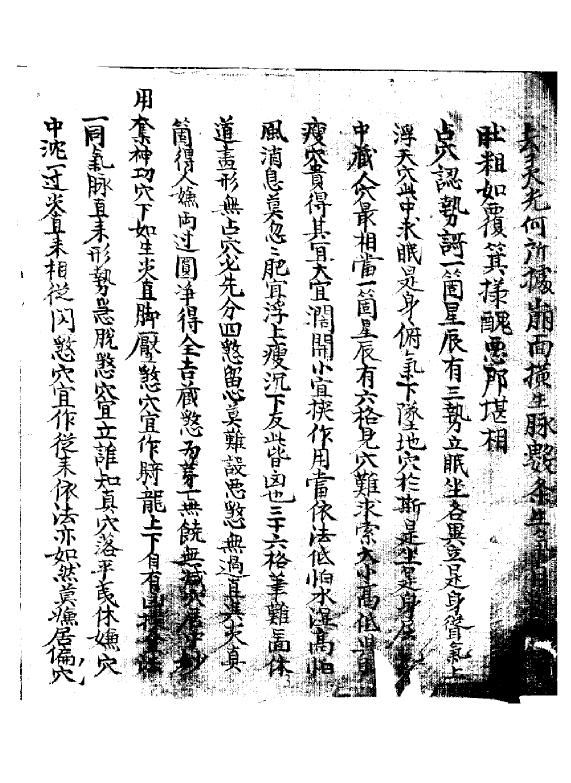 天光何所據崩面橫生脉數条生
肚粗如覆箕樣醜悪那堪相
占穴認勢訶一箇星辰有三勢立眠坐各異立是身聳氣上
浮天穴此中求眠是身俯氣下墜地穴於斯是坐是身屈
中藏人穴最相當一箇星辰有六格見穴難求索大小高低
瘦穴貴得其宜大宜濶開小宜挨作用當依法低怕水濕高怕
風消息莫忽〻肥宜浮上瘦沉下反此皆凶也三十六格筆難畵休
道畵形無占穴先分四煞留心莫難設悪煞無過直与尖真
箇得人嫌両辺圓净得全吉藏煞為第一無饒無減
用奪神功穴下如生尖直脚壓煞穴宜作騎龍上下自有
一同氣脉直来形勢急脱煞穴宜立誰知真穴落平夷休嫌穴
中沈一辺尖直来相從閃煞穴宜作從来依法亦如然莫嫌居偏穴